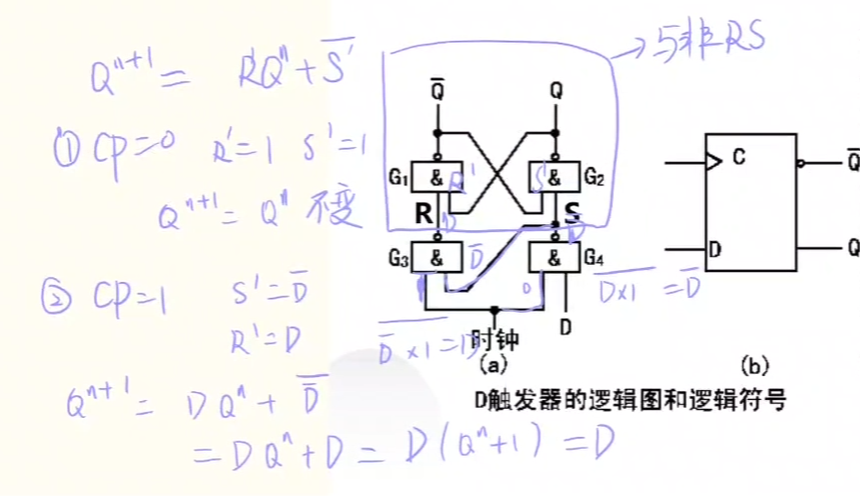 Q^{n+1} = R'Q^n + \overline{S'}
→ 与非RS
① CP=0 R'=1 S'=1
Q^{n+1} = Q^n 不变
② CP=1 S'=\overline{D}
R'=D
Q^{n+1} = DQ^n + \overline{\overline{D}}
= DQ^n+D = D(Q^n+1) = D
\overline{Q} Q
G₁ & R' S' & G₂
R S
D D
G₃ & \overline{D} & G₄
0
\overline{D×1} = \overline{D}
\overline{\overline{D}×1} = D
时钟 D
(a)
C \overline{Q}
D Q
(b)
D触发器的逻辑图和逻辑符号